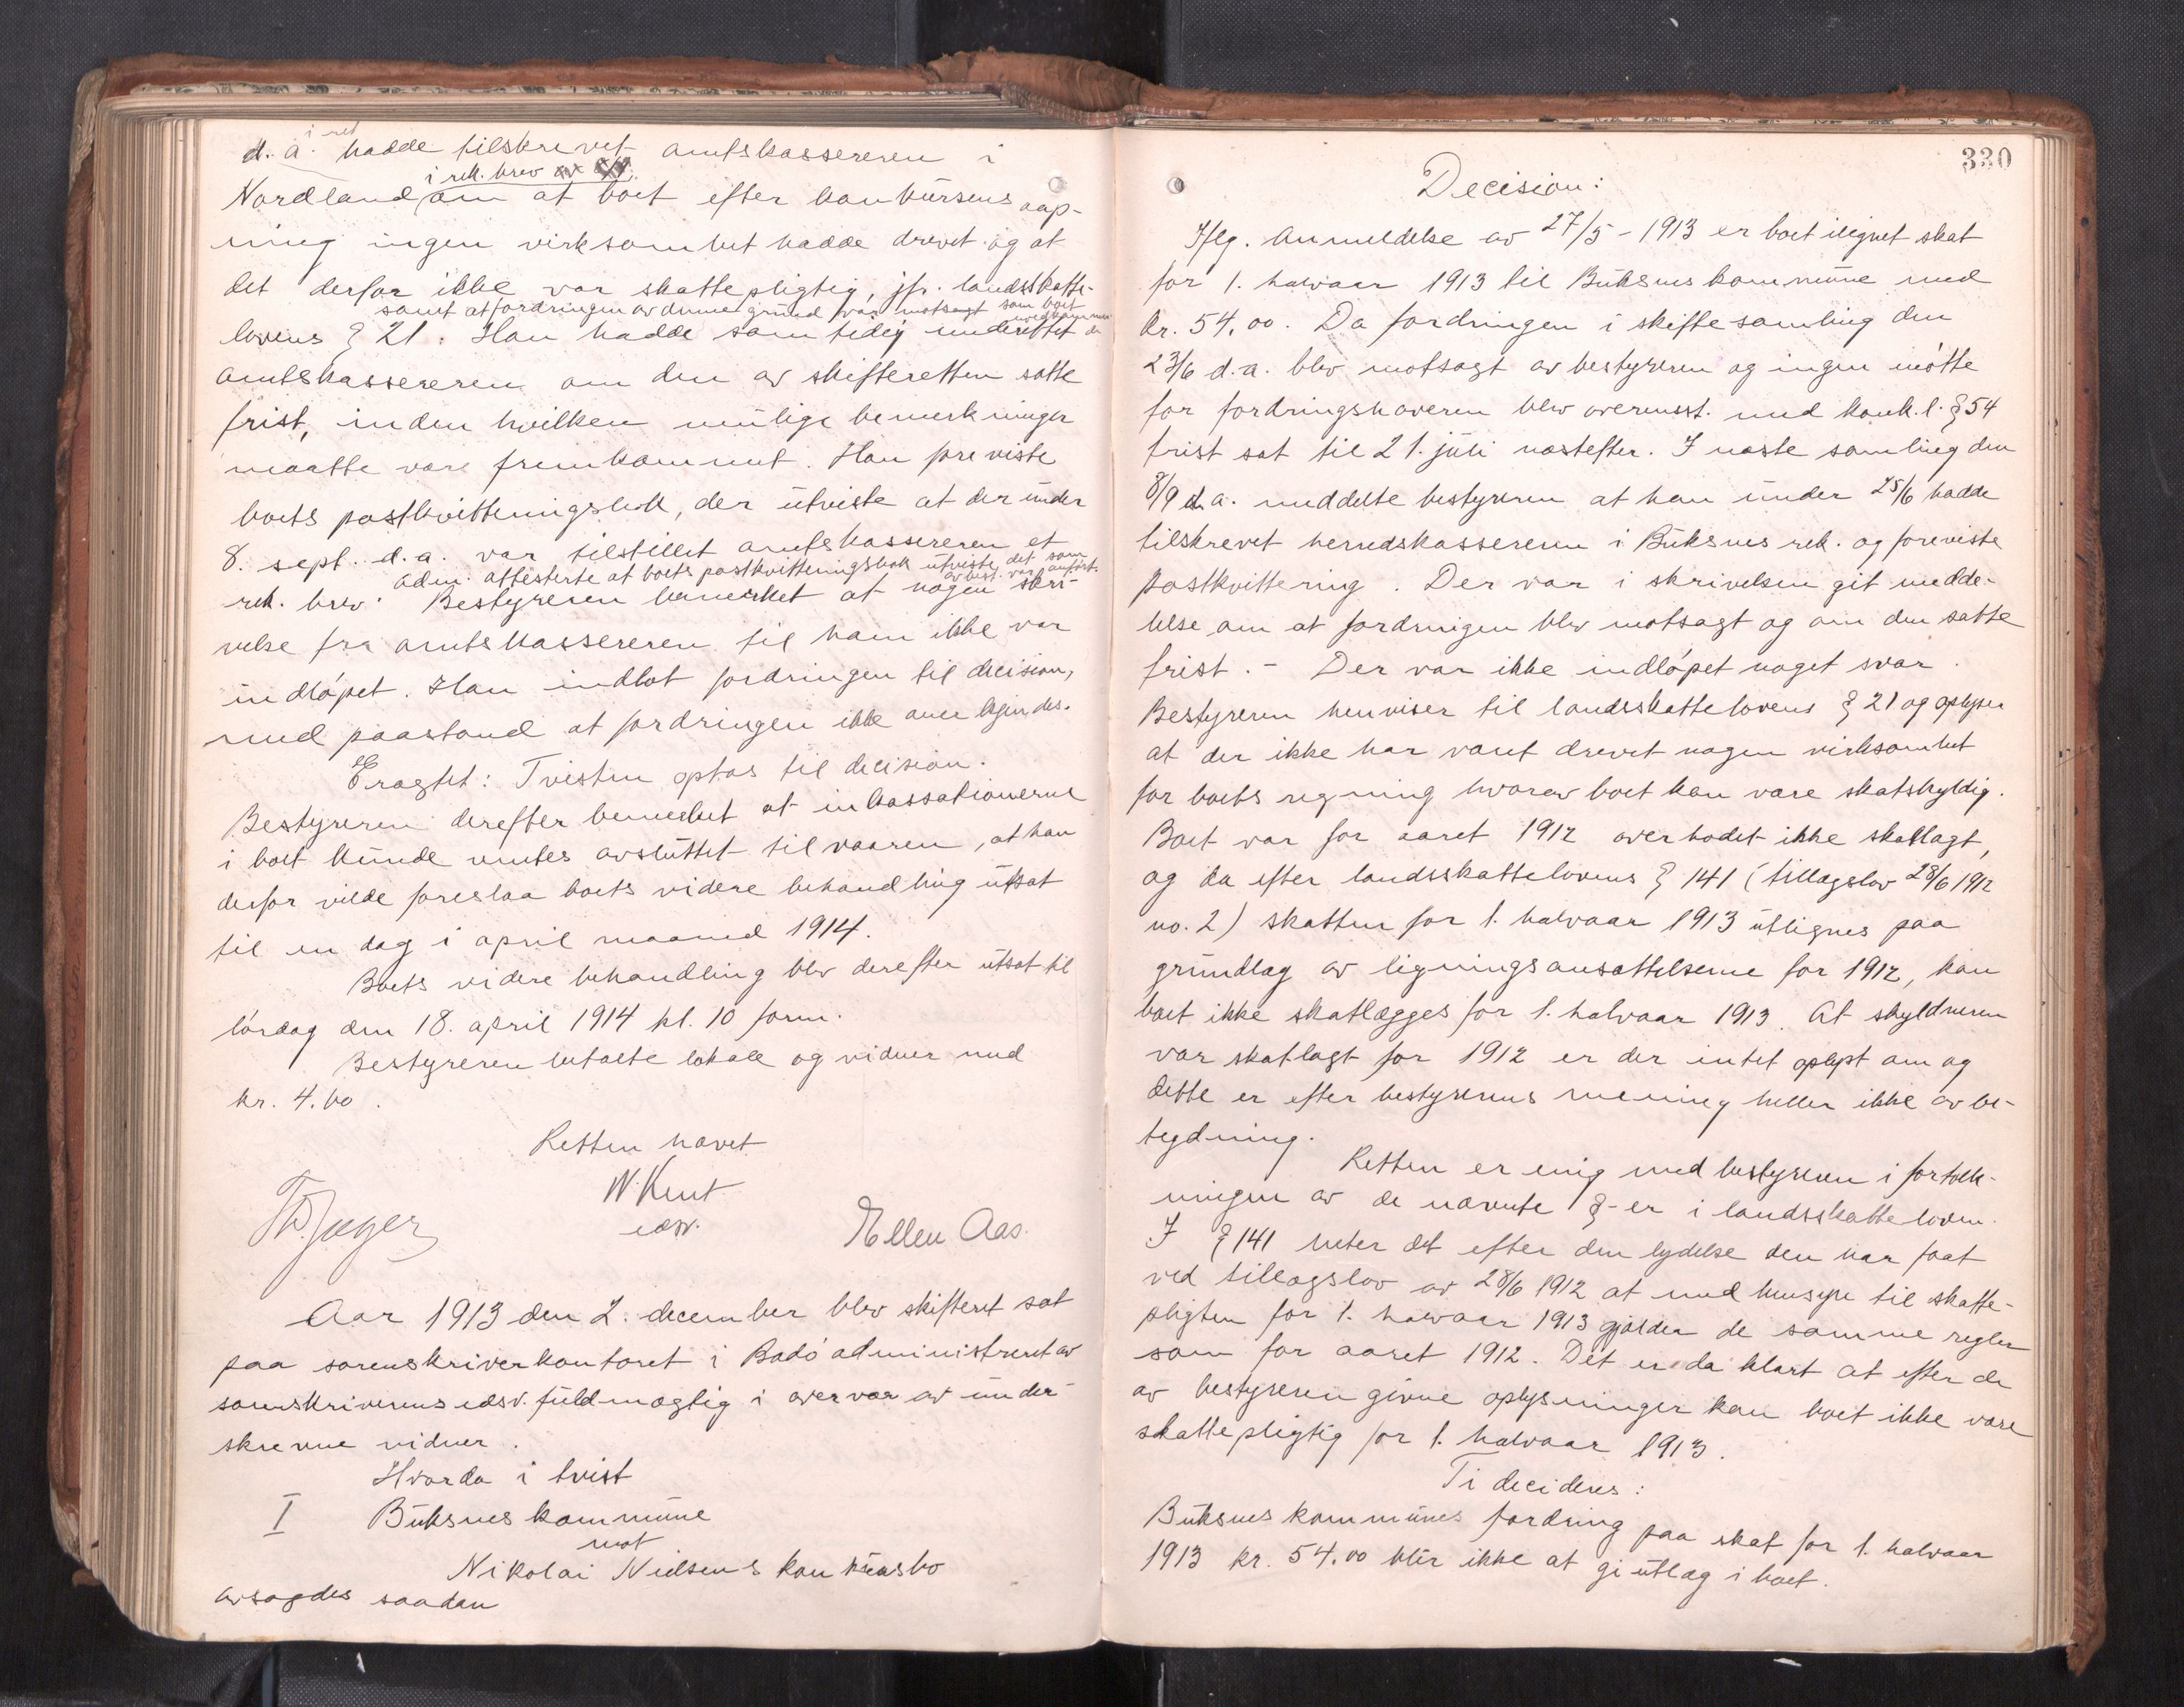 d. a. hadde tilskrevet amtskassereren i
i rek. brev
Nordland om at boet efter konkursens aap-
ning ingen virksomhet hadde drevet og at
det derfor ikke var skattepligtig, jfr. landsskatte-
samt at fordringen av denne grund var motsagt som boet uvedkommende
lovens § 21. Han hadde samtidig underettet
amtskassereren om den av skifteretten satte
frist, inden hvilken mulige bemerkninger
maatte være fremkommet. Han foreviste
boets postkvitteringsbok, der utviste at der under
8. sept. d.a. var tilstillet amtskassereren et
adm. attesterte at boets postkvitteringsbok utviste det som av best. var anført.
rek. brev. Bestyreren bemerket at nogen skri-
velse fra amtskassereren til ham ikke var
indløpet. Han indlot fordringen til decision,
med paastand at fordringen ikke anerkjendes.
Eragtet: Tvisten optas til decision.
Bestyreren derefter bemerket at inkassationerne
i boet kunde ventes avsluttet til vaaren, at han
derfor vilde foreslaa boets videre behandling utsat
til en dag i april maaned 1914.
Boets videre behandling blev derefter utsat til
lørdag den 18. april 1914 kl. 10 form.
Bestyreren betalte lokale og vidner med
kr. 4.60.
Retten hævet
W. Kent
edsv.
Th. Jæger
Ellen Aas.
Aar 1913 den 2. december blev skifteret sat
paa sorenskriverkontoret i Bodø administreret av
sorenskriverens edsv. fuldmægtig i overvær av under-
skrevne vidner.
Hvorda i tvist
I Buksnes kommune
mot
Nikolai Nielsens konkursbo
avsagdes saadan
330
Decision:
Iflg. Anmeldelse av 27/5-1913 er boet ilignet skat
for 1. halvaar 1913 til Buksnes kommune med
kr. 54.00. Da fordringen i skiftesamling den
23/6 d.a. blev motsagt av bestyreren og ingen møtte
for fordringshaveren blev overensst. med konk.l. § 54
frist sat til 21. juli næstefter. I næste samling den
8/9 d.a. meddelte bestyreren at han under 25/6 hadde
tilskrevet herredskassereren i Buksnes rek. og foreviste
postkvittering. Der var i skrivelsen git medde-
lelse om at fordringen blev motsagt og om den satte
frist. - Der var ikke indløpet noget svar.
Bestyreren henviser til landsskattelovens § 21 og oplyser
at der ikke har været drevet nogen virksomhet
for boets regning hvorav boet kan være skatskyldig.
Boet var for aaret 1912 overhodet ikke skatlagt,
og da efter landsskattelovens § 141 (tillægslov 28/6 1912
no. 2) skatten for 1. halvaar 1913 utlignes paa
grundlag av ligningsansættelserne for 1912, kan
boet ikke skatlægges for 1. halvaar 1913. At skyldneren
var skatlagt for 1912 er der intet oplyst om og
dette er efter bestyrerens mening heller ikke av be-
tydning.
Retten er enig med bestyreren i fortolk-
ningen av de nævnte §-er i landsskatteloven.
I § 141 heter det efter den lydelse den har faat
ved tillægslov av 28/6 1912 at med hensyn til skatte-
pligten for 1. halvaar 1913 gjælder de samme regler
som for aaret 1912. Det er da klart at efter de
av bestyreren givne oplysninger kan boet ikke være
skattepligtig for 1. halvaar 1913.
Ti decideres:
Buksnes kommunes fordring paa skat for 1. halvaar
1913 kr. 54.00 blir ikke at gi utlæg i boet.